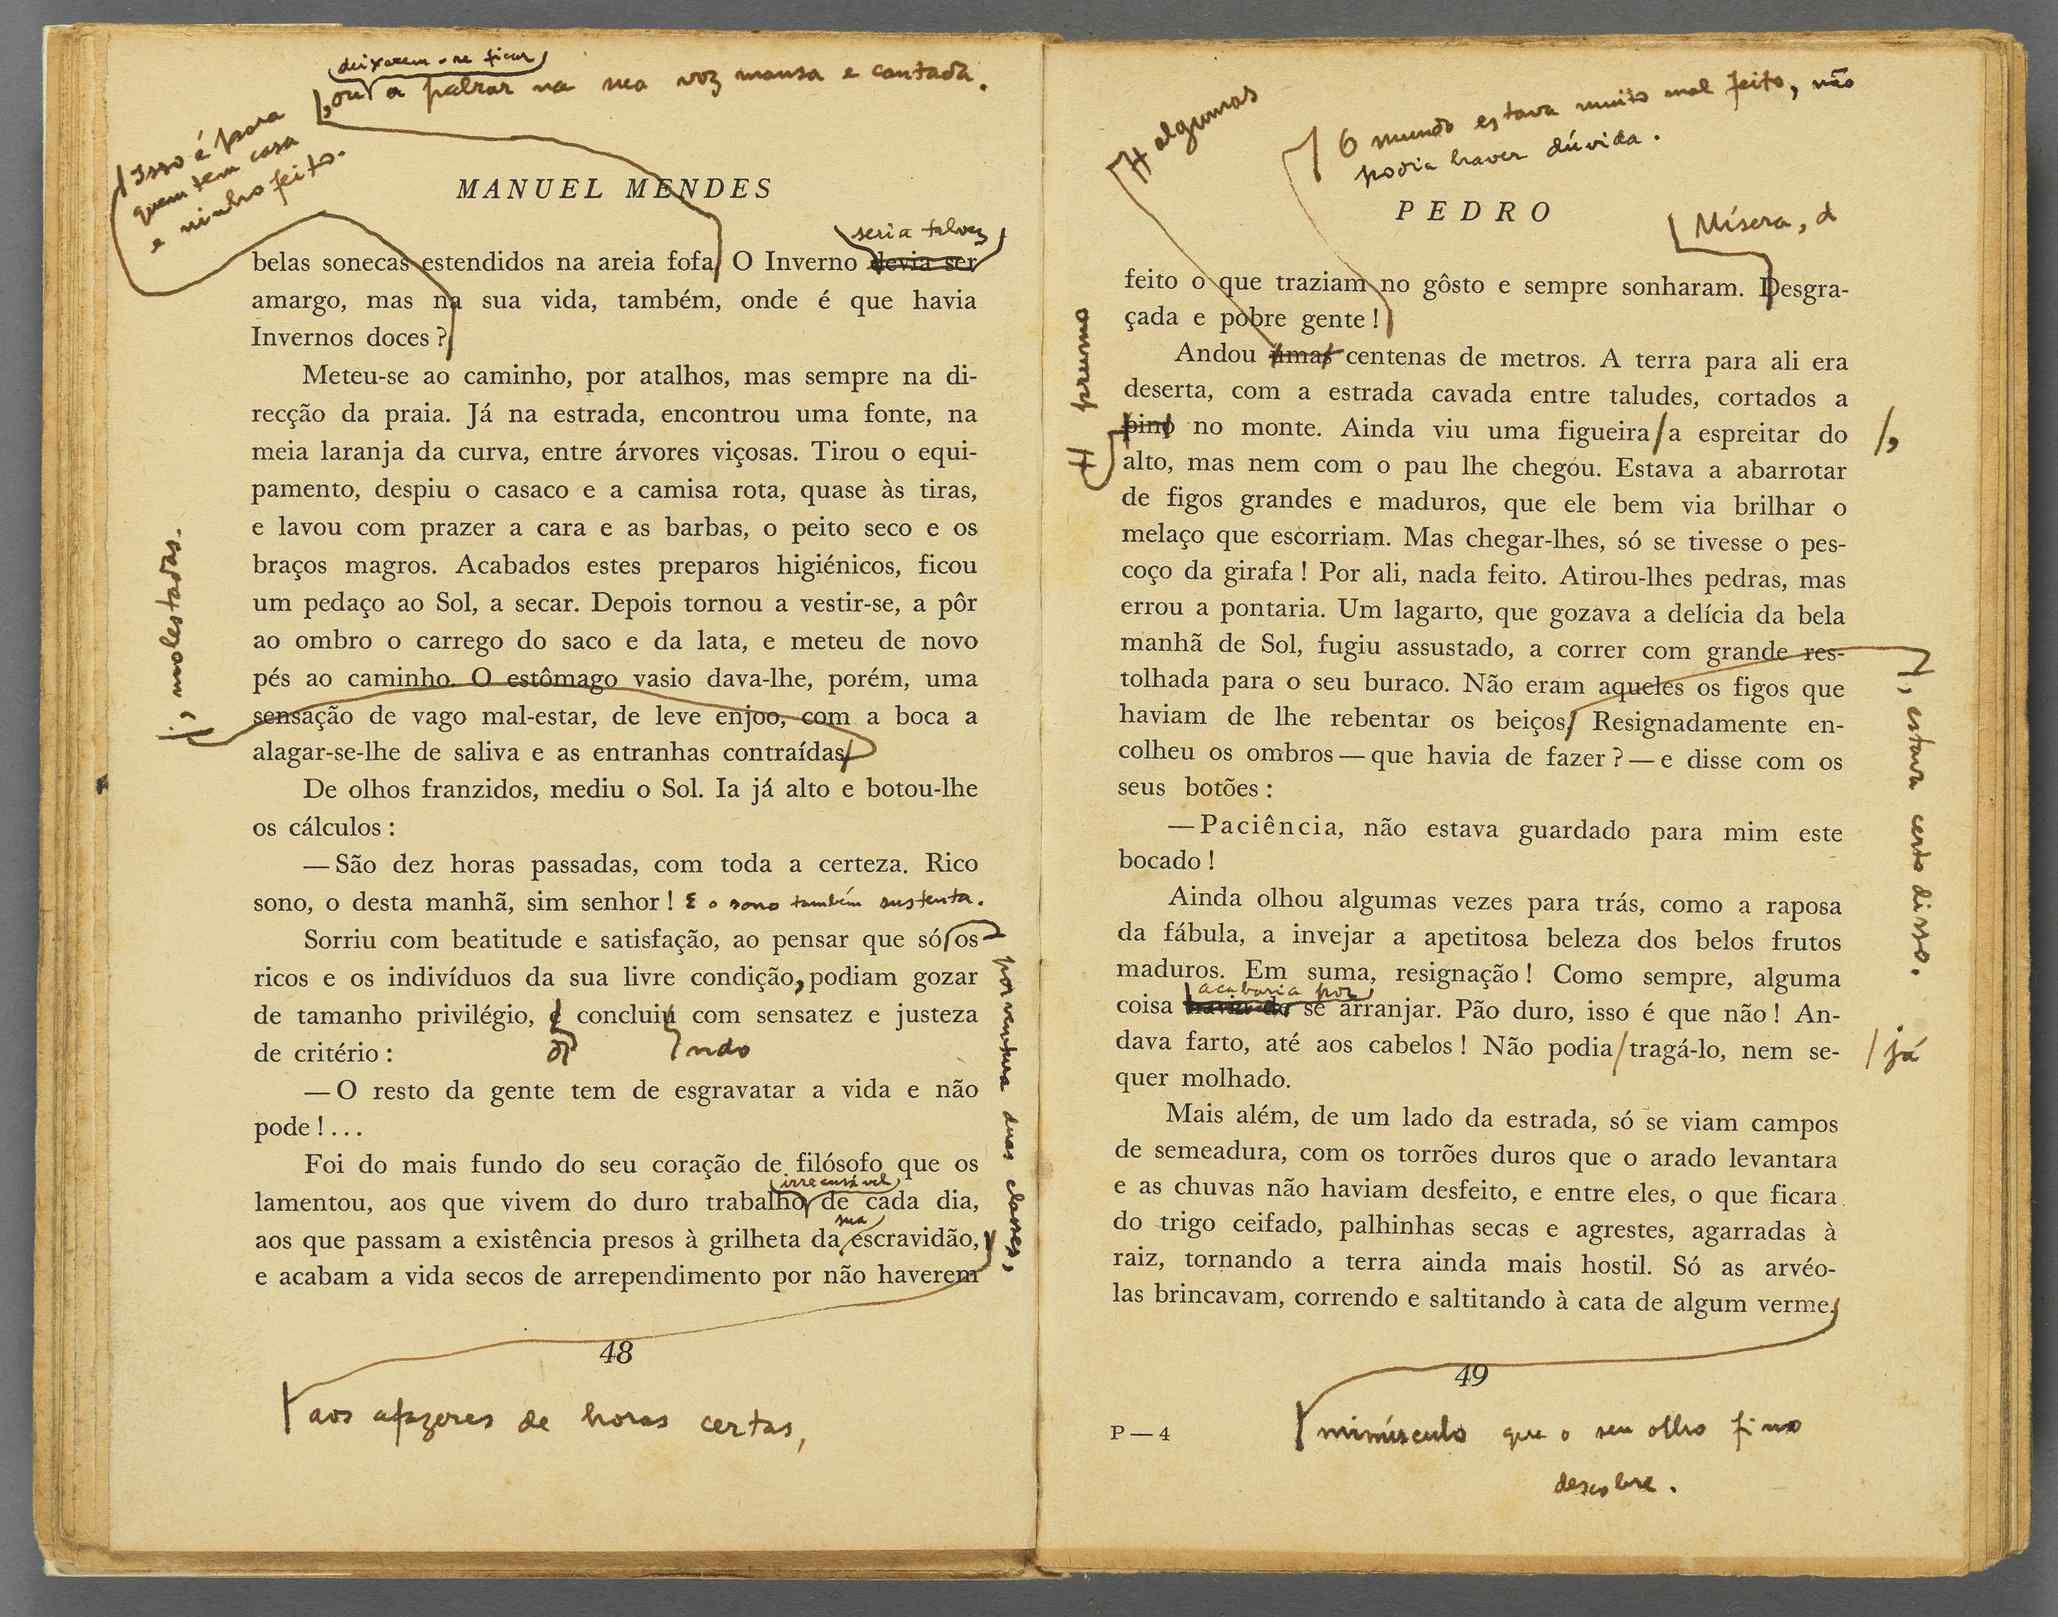 deixarem-se ficar
, ou a palrar na sua voz mansa e cantada.
Isso é para
quem tem casa
e ninho feito.
MANUEL MENDES
seria talvez
belas sonecas estendidos na areia fofa. O Inverno devia ser
amargo, mas na sua vida, também, onde é que havia
Invernos doces?
Meteu-se ao caminho, por atalhos, mas sempre na di-
recção da praia. Já na estrada, encontrou uma fonte, na
meia laranja da curva, entre árvores viçosas. Tirou o equi-
pamento, despiu o casaco e a camisa rota, quase às tiras,
e lavou com prazer a cara e as barbas, o peito seco e os
braços magros. Acabados estes preparos higiénicos, ficou
um pedaço ao Sol, a secar. Depois tornou a vestir-se, a pôr
ao ombro o carrego do saco e da lata, e meteu de novo
pés ao caminho. O estômago vasio dava-lhe, porém, uma
sensação de vago mal-estar, de leve enjoo, com a boca a
alagar-se-lhe de saliva e as entranhas contraídas
, molestadas.
De olhos franzidos, mediu o Sol. Ia já alto e botou-lhe
os cálculos:
— São dez horas passadas, com toda a certeza. Rico
sono, o desta manhã, sim senhor! E o sono também sustenta.
Sorriu com beatitude e satisfação, ao pensar que só os
ricos e os indivíduos da sua livre condição, podiam gozar
de tamanho privilégio, e concluiu com sensatez e justeza
de critério: ndo
porventura duas classes,
— O resto da gente tem de esgravatar a vida e não
pode!...
Foi do mais fundo do seu coração de filósofo que os
irrecusável
lamentou, aos que vivem do duro trabalho de cada dia,
sua
aos que passam a existência presos à grilheta da escravidão,
e acabam a vida secos de arrependimento por não haverem
48
aos afazeres de horas certas,
algumas
O mundo estava muito mal feito, não
podia haver dúvida.
PEDRO
Mísera, d
feito o que traziam no gôsto e sempre sonharam. Desgra-
çada e pobre gente!
Andou umas centenas de metros. A terra para ali era
deserta, com a estrada cavada entre taludes, cortados a
prumo
pino no monte. Ainda viu uma figueira a espreitar do ,
alto, mas nem com o pau lhe chegou. Estava a abarrotar
de figos grandes e maduros, que ele bem via brilhar o
melaço que escorriam. Mas chegar-lhes, só se tivesse o pes-
coço da girafa! Por ali, nada feito. Atirou-lhes pedras, mas
errou a pontaria. Um lagarto, que gozava a delícia da bela
manhã de Sol, fugiu assustado, a correr com grande res-
tolhada para o seu buraco. Não eram aqueles os figos que
haviam de lhe rebentar os beiços. Resignadamente en-
, estava certo disso.
colheu os ombros — que havia de fazer? — e disse com os
seus botões:
— Paciência, não estava guardado para mim este
bocado!
Ainda olhou algumas vezes para trás, como a raposa
da fábula, a invejar a apetitosa beleza dos belos frutos
maduros. Em suma, resignação! Como sempre, alguma
acabaria por
coisa havia de se arranjar. Pão duro, isso é que não! An-
dava farto, até aos cabelos! Não podia tragá-lo, nem se- já
quer molhado.
Mais além, de um lado da estrada, só se viam campos
de semeadura, com os torrões duros que o arado levantara
e as chuvas não haviam desfeito, e entre eles, o que ficara
do trigo ceifado, palhinhas secas e agrestes, agarradas à
raiz, tornando a terra ainda mais hostil. Só as arvéo-
las brincavam, correndo e saltitando à cata de algum verme
49
P — 4
minúsculo que o seu olho fino
descobre.